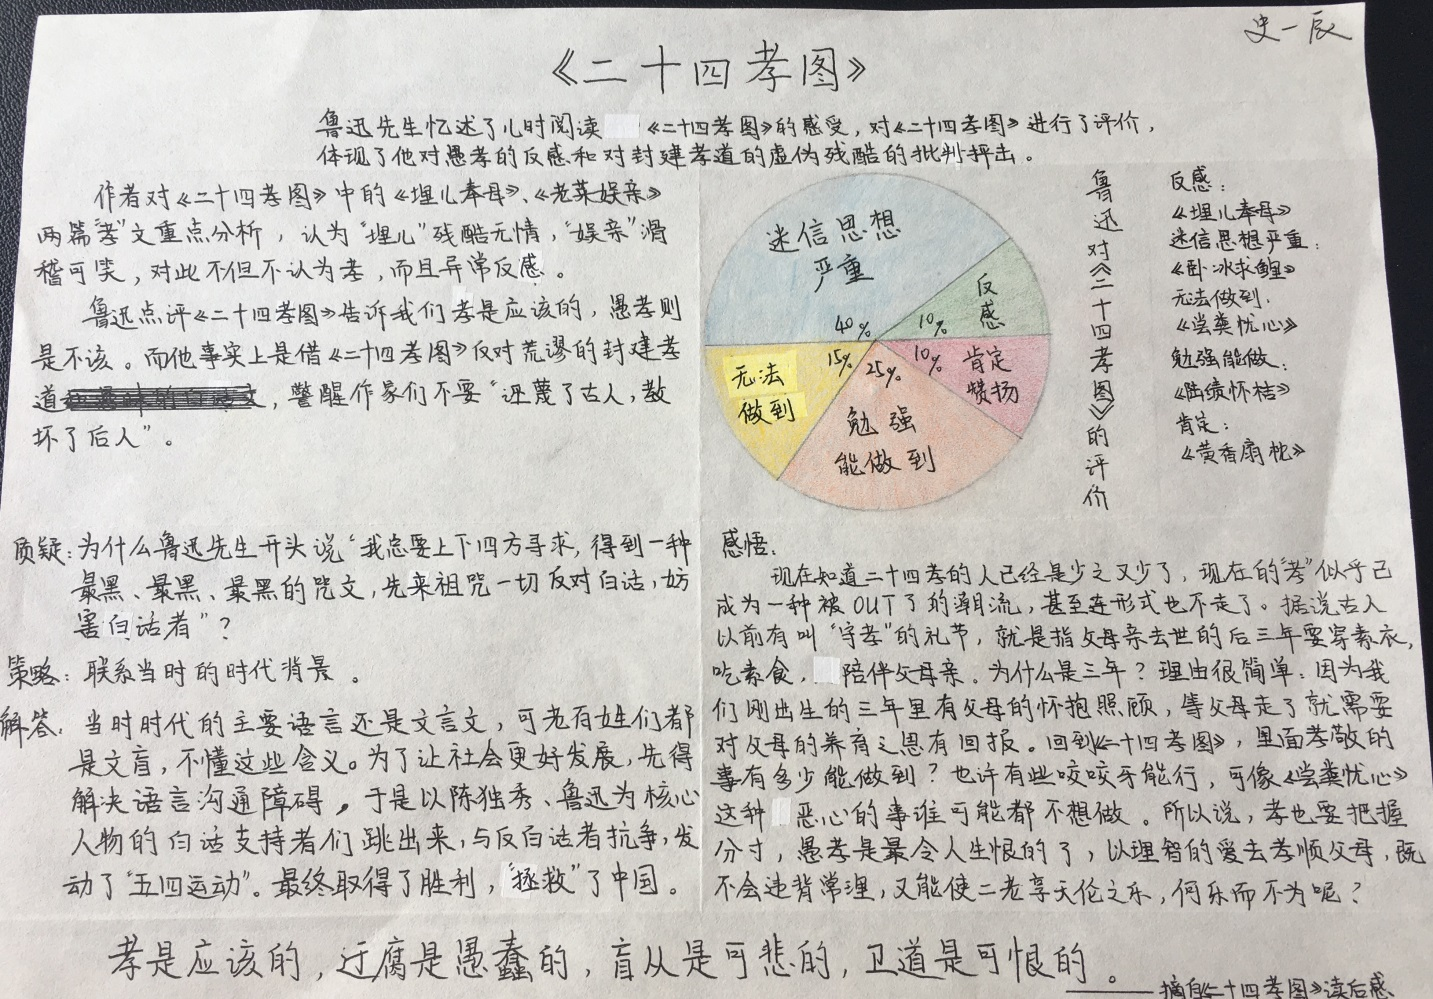 史一辰
《二十四孝图》
鲁迅先生忆述了儿时阅读《二十四孝图》的感受，对《二十四孝图》进行了评价，
体现了他对愚孝的反感和对封建孝道的虚伪残酷的批判抨击。
作者对《二十四孝图》中的《埋儿奉母》、《老莱娱亲》
两篇“孝”文重点分析，认为“埋儿”残酷无情，“娱亲”滑
稽可笑，对此不但不认为孝，而且异常反感。
鲁迅点评《二十四孝图》告诉我们孝是应该的，愚孝则
是不该。而他事实上是借《二十四孝图》反对荒谬的封建孝
道，警醒作家们不要“诬蔑了古人，教
坏了后人”。
迷信思想
严重
40%
反感
10%
肯定
赞扬
10%
勉强
能做到
25%
无法
做到
15%
鲁迅对《二十四孝图》的评价
反感：
《埋儿奉母》
迷信思想严重：
《卧冰求鲤》
无法做到：
《尝粪忧心》
勉强能做：
《陆绩怀桔》
肯定：
《黄香扇枕》
质疑：为什么鲁迅先生开头说“我总要上下四方寻求，得到一种
最黑、最黑、最黑的咒文，先来诅咒一切反对白话，妨
害白话者”？
策略：联系当时的时代背景。
解答：当时时代的主要语言还是文言文，可老百姓们都
是文盲，不懂这些含义。为了让社会更好发展，先得
解决语言沟通障碍，于是以陈独秀、鲁迅为核心
人物的白话支持者们跳出来，与反白话者抗争，发
动了“五四运动”。最终取得了胜利，“拯救”了中国。
感悟：
现在知道二十四孝的人已经是少之又少了，现在的“孝”似乎已
成为一种被OUT了的潮流，甚至连形式也不走了。据说古人
以前有叫“守孝”的礼节，就是指父母亲去世的后三年要穿素衣，
吃素食，陪伴父母亲。为什么是三年？理由很简单：因为我
们刚出生的三年里有父母的怀抱照顾，等父母走了就需要
对父母的养育之恩有回报。回到《二十四孝图》，里面孝敬的
事有多少能做到？也许有些咬咬牙能行，可像《尝粪忧心》
这种恶心的事谁可能都不想做。所以说，孝也要把握
分寸，愚孝是最令人生恨的了，以理智的爱去孝顺父母，既
不会违背常理，又能使二老享天伦之乐，何乐而不为呢？
孝是应该的，迂腐是愚蠢的，盲从是可悲的，卫道是可恨的。
——摘自《二十四孝图》读后感